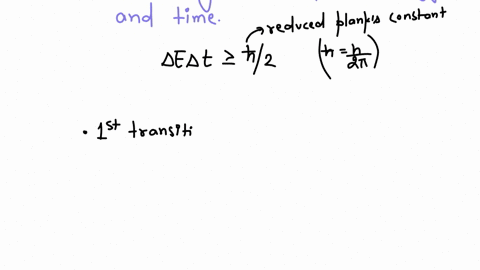 and time.
reduced planks constant
ΔEΔt ≥ ħ/2 (ħ = h/2π)
• 1st transiti